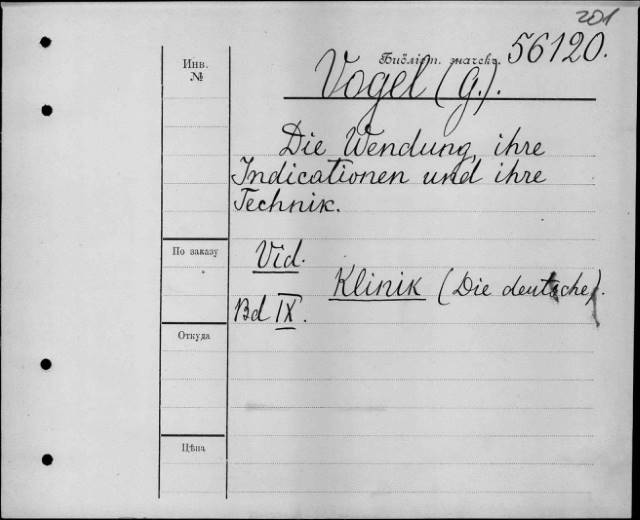 201
Библіот. значекъ. 56120.
Инв.
№
Vogel (G.).
Die Wendung, ihre
Indicationen und ihre
Technik.
По заказу
Vid.
Klinik (Die deutsche).
Bd IX.
Откуда
Цѣна